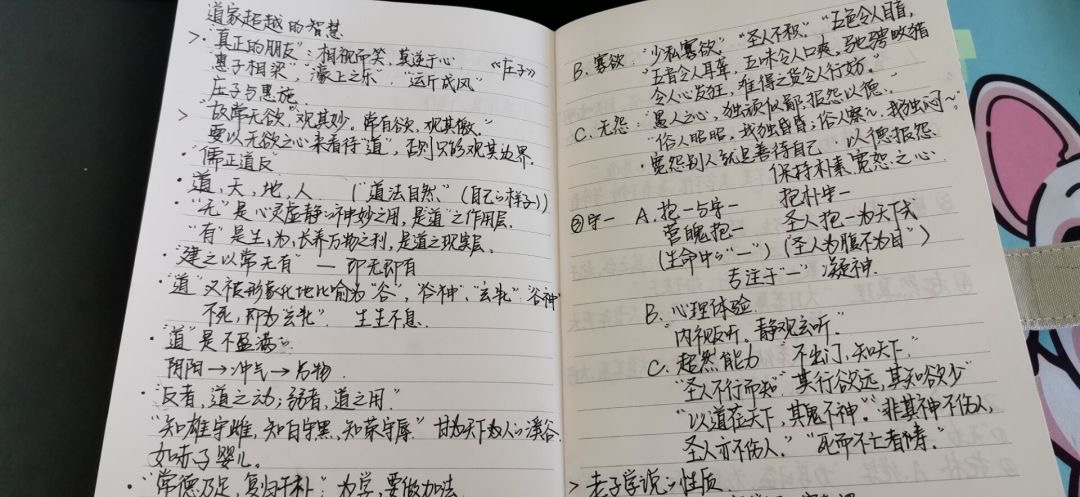 道家超越的智慧
> ·"真正的朋友"：相视而笑，莫逆于心. 《庄子》
惠子相梁，"濠上之乐"、"运斤成风"
庄子与惠施.
> "故常无欲"，观其妙。常有欲，观其徼。"
要以无欲之心来看待"道"，否则只能观其边界.
·"儒正道反"
·道、天、地、人 （"道法自然"、（自己的样子））
·"无"是心灵虚静的神妙之用，是道之作用层.
"有"是生、为、长养万物之利，是道之现实层.
·"建之以常无有" — 即无即有
·"道"又被形象化地比喻为"谷"，"谷神"、"玄牝"."谷神
不死，即为玄牝". 生生不息.
·"道"是不盈满的.
阴阳→冲气→万物.
·"反者，道之动；弱者，道之用."
"知雄守雌，知白守黑，知荣守辱." 甘为天下为人的溪谷.
如赤子婴儿。
·"常德乃足，复归于朴"：为学，要做加法.
B. 寡欲："少私寡欲"."圣人不积"."五色令人目盲，
"五音令人耳聋，五味令人口爽，驰骋畋猎
令人心发狂，难得之货令人行妨."
C. 无怨："愚人之心，独顽似鄙"报怨以德.
"俗人昭昭，我独昏昏，俗人察~，我独闷~"
·宽恕别人就是善待自己 以德报怨.
保持朴素宽恕之心.
②守一 A. 抱一与守一 抱朴守一
营魄抱一 圣人抱一为天下式
（生命中的"一"）（圣人为腹不为目"）
专注于"一" 凝神.
B. 心理体验.
"内视反听。静观玄听."
C. 超然能力 "不出门，知天下."
"圣人不行而知" "其行欲远，其知欲少"
"以道莅天下，其鬼不神." "非其神不伤人，
圣人亦不伤人." "死而不亡者寿."
> 老子学说的性质